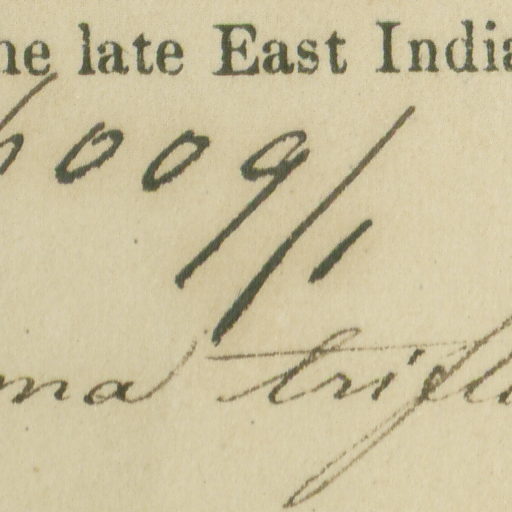 he late East India
6009/1
ma trifl